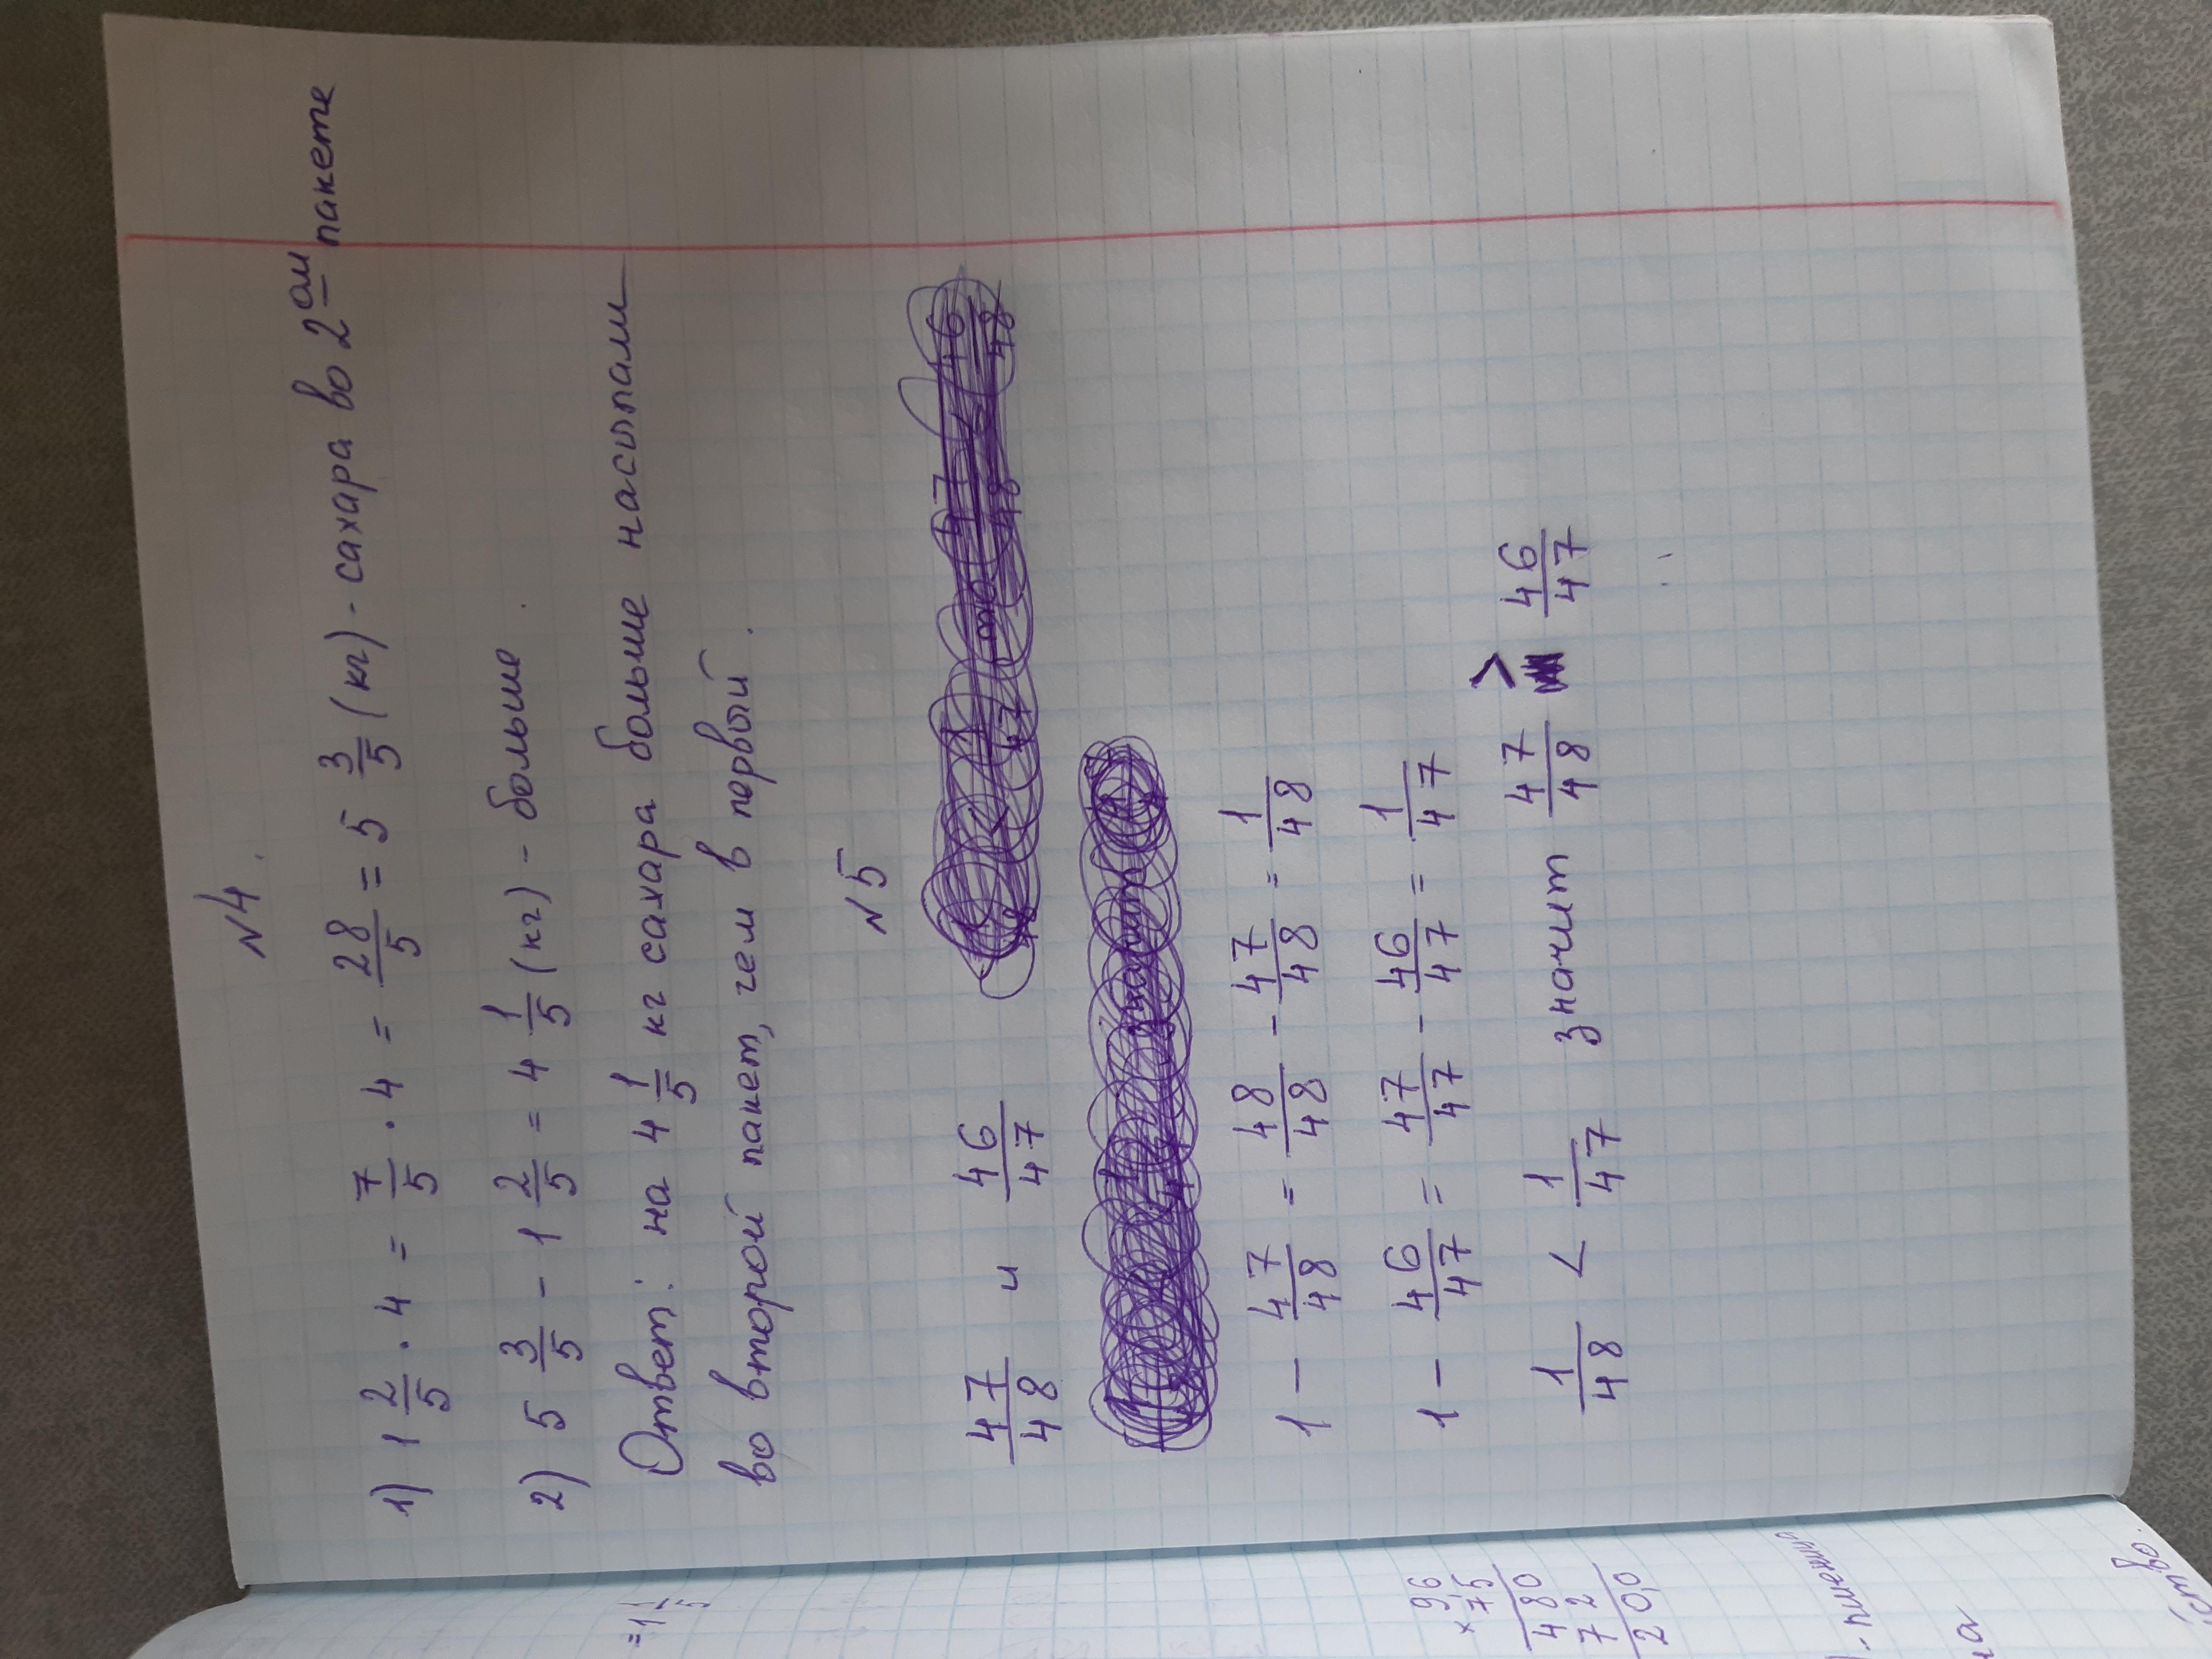 №4.
1) 1 2/5 · 4 = 7/5 · 4 = 28/5 = 5 3/5 (кг) - сахара во 2ом пакете
2) 5 3/5 - 1 2/5 = 4 1/5 (кг) - больше.
Ответ: на 4 1/5 кг сахара больше насыпали
во второй пакет, чем в первый.
№5
47/48 и 46/47
1 - 47/48 = 48/48 - 47/48 = 1/48
1 - 46/47 = 47/47 - 46/47 = 1/47
1/48 < 1/47 значит 47/48 > 46/47
= 1 1/5
96
× 75
480
72
20,0